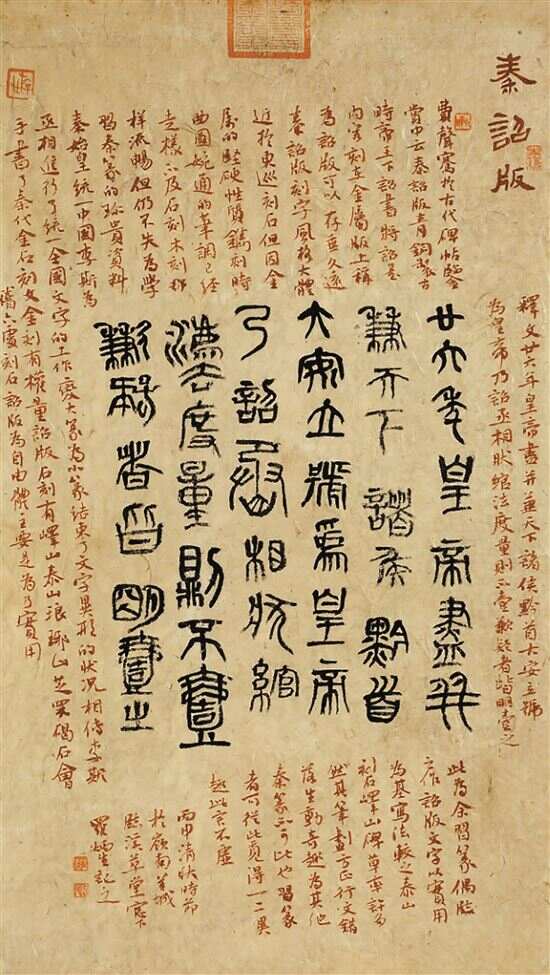 秦詔版
費聲騫於古代碑帖鑒
賞中云秦詔版青銅製古
時帝王下詔書將詔書
內容刻在金屬版上稱
為詔版可以存垂久遠
秦詔版刻字風格大體
近於東巡刻石但因金
屬的堅硬性質鐫刻時
曲圓婉通的筆調已經
走樣不及石刻木刻那
樣流暢但仍不失為學
習秦篆的珍貴資料
秦始皇統一中國李斯為
丞相進行了統一全國文字的工作廢大篆為小篆結束了文字異形的狀況相傳李斯
手書了秦代金石刻文金刻有權量詔版石刻有嶧山泰山瑯琊山芝罘碣石會
嵇六處刻石詔版為自由體主要是為了實用
釋文廿六年皇帝盡并兼天下諸侯黔首大安立號
為皇帝乃詔丞相狀綰法度量則不壹歉疑者皆明壹之
廿六年皇帝盡并
兼天下諸侯黔首
大安立號為皇帝
乃詔丞相狀綰
法度量則不壹
歉疑者皆明壹之
此為余習篆偶臨
之作詔版文字以實用
為基寫法較之泰山
刻石嶧山碑草率許多
然其筆畫方正行文錯
落生動奇趣為其他
秦篆不可比也習篆
者可從此覓得一二異
趣此言不虛
丙申清秋時節
於嶺南羊城
臨溪草堂窗下
羅炳生記之